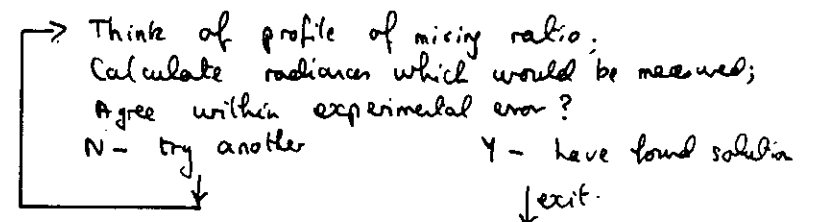 Think of profile of mixing ratio;
Calculate radiances which would be measured;
Agree within experimental error?
N - try another Y - have found solution
exit.